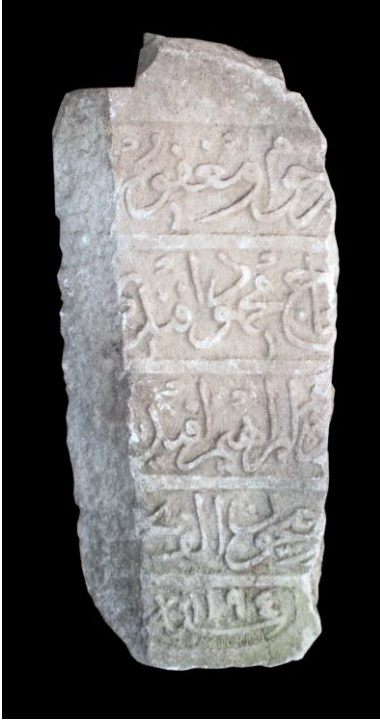 مرحوم و مغفور
حاج محمود افندى
ابراهيم افندى
روحيچون الفاتحه
١١٩٤